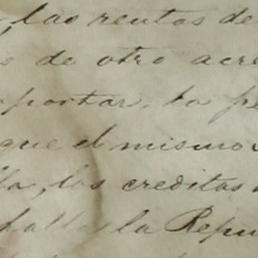 , las rentas de
s de otro acre
portar, la pe
que el mismo
la, los creditos
halla la Repu